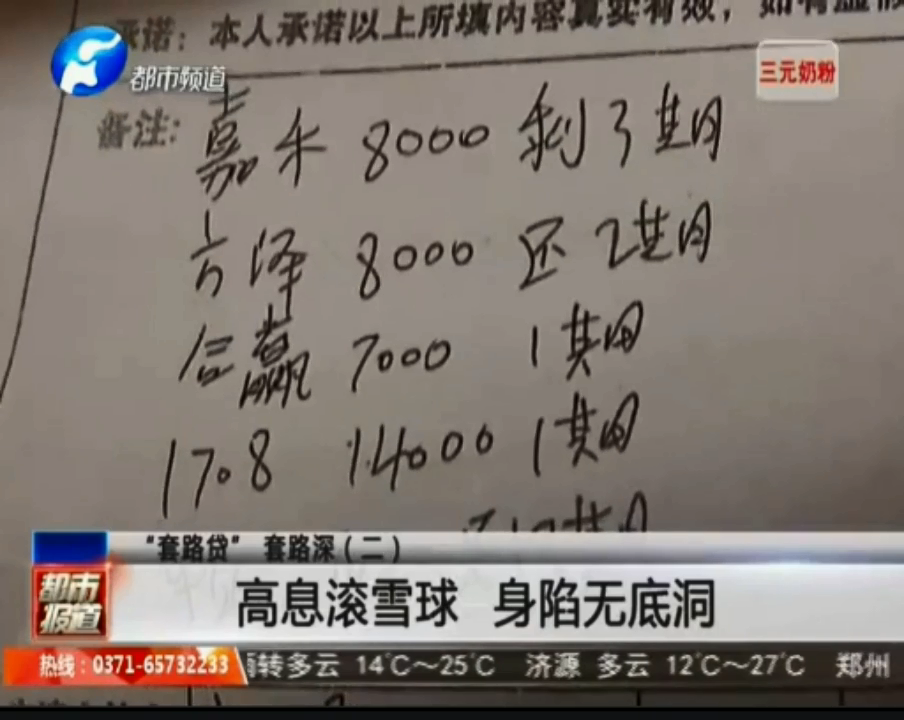 承诺：本人承诺以上所填内容真实有效，如有虚假
都市频道
三元奶粉
备注：
嘉禾 8000 剩3期
方泽 8000 还2期
信赢 7000 1期
1708 14000 1期
“套路贷” 套路深（二）
都市报道
高息滚雪球 身陷无底洞
热线：0371-65732233
转多云 14℃～25℃ 济源 多云 12℃～27℃ 郑州